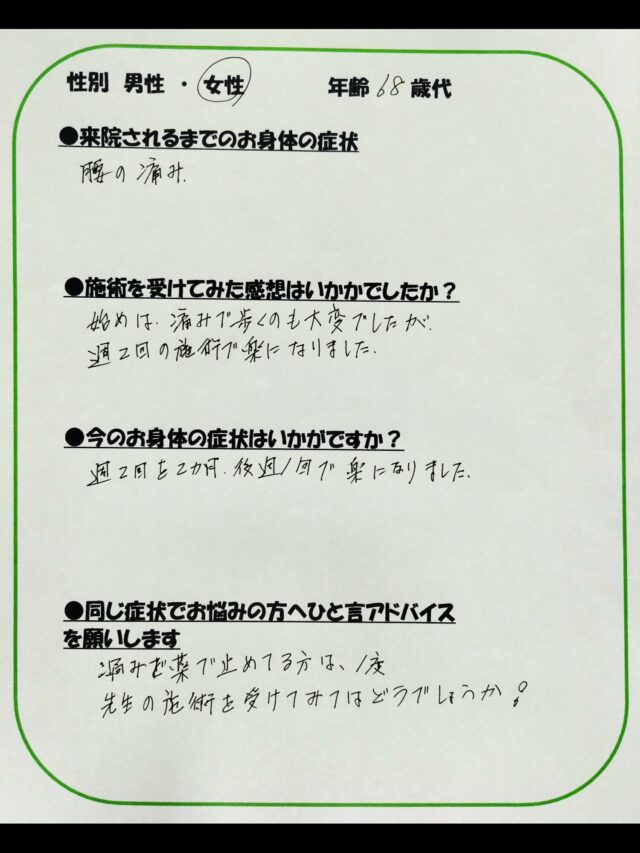 性別 男性 ・ 女性 年齢 68 歳代
●来院されるまでのお身体の症状
腰の痛み.
●施術を受けてみた感想はいかかでしたか?
始めは、痛みで歩くのも大変でしたが、
週2回の施術で楽になりました.
●今のお身体の症状はいかがですか?
週2回を2カ月.後週1回で楽になりました、
●同じ症状でお悩みの方へひと言アドバイス
を願いします
痛みを薬で止めてる方は、1度
先生の施術を受けてみてはどうでしょうか!